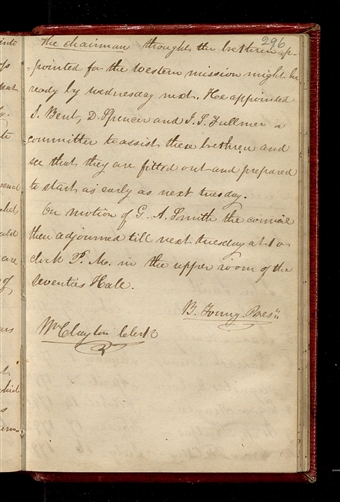 296
The chairman thought the brethren ap-
-pointed for the western mission might be
ready by wednesday next. He appointed
S. Bent, D. Spencer and J. S. Fullmer a
committee to assist these brethren and
see that they are fitted out and prepared
to start as early as next tuesday.
On motion of G. A. Smith the council
then adjourned till next tuesday at 1 o
clock P. M. in the upper room of the
Seventies Hall.
B. Young Pres.
Wm Clayton Clerk